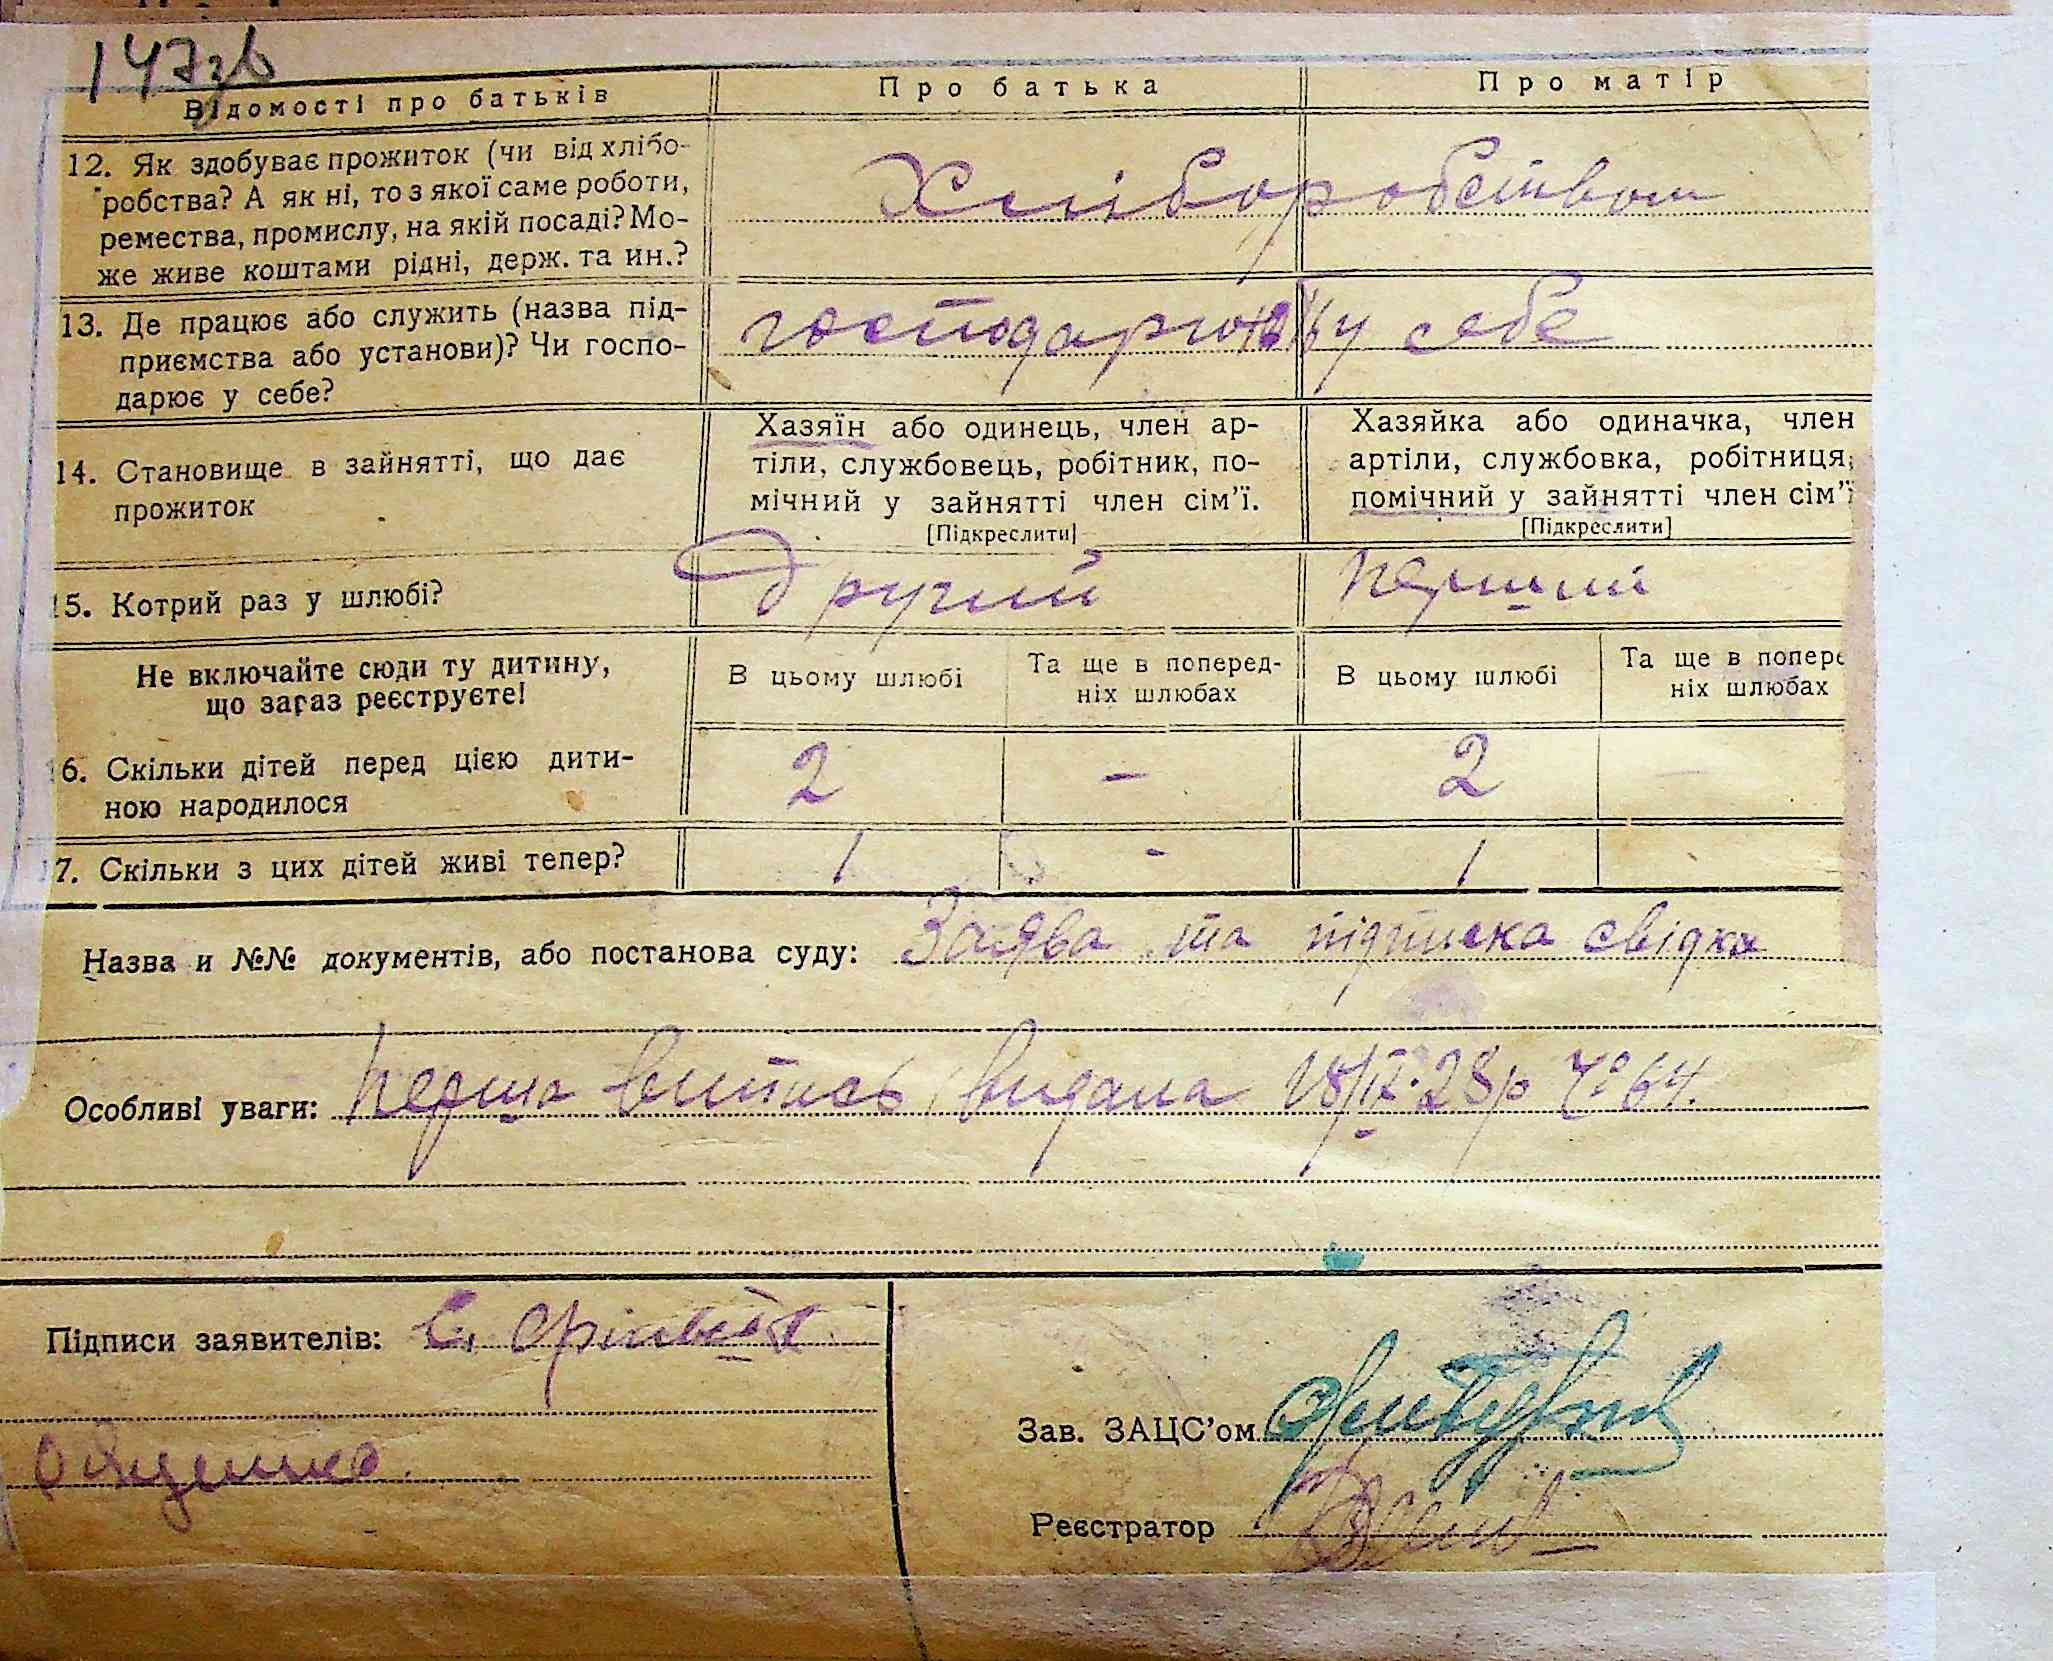 147зв
Відомості про батьків
Про батька
Про матір
12. Як здобуває прожиток (чи від хлібо-
робства? А як ні, то з якої саме роботи,
ремества, промислу, на якій посаді? Мо-
же живе коштами рідні, держ. та ин.?
Хліборобством
13. Де працює або служить (назва під-
приємства або установи)? Чи госпо-
дарює у себе?
у себе
14. Становище в зайнятті, що дає
прожиток
Хазяїн або одинець, член ар-
тіли, службовець, робітник, по-
мічний у зайнятті член сім'ї.
[Підкреслити]
Хазяйка або одиначка, член
артіли, службовка, робітниця,
помічний у зайнятті член сім'ї
[Підкреслити]
15. Котрий раз у шлюбі?
Другий
перший
Не включайте сюди ту дитину,
що зараз реєструєте!
В цьому шлюбі
Та ще в поперед-
ніх шлюбах
В цьому шлюбі
Та ще в попере
ніх шлюбах
6. Скільки дітей перед цією дити-
ною народилося
2 - 2 -
7. Скільки з цих дітей живі тепер?
1 - 1
Назва и №№ документів, або постанова суду: Заява та підписка свідка
Особливі уваги: Перша випись видана 18/IX-28р № 64.
Підписи заявителів:
Зав. ЗАЦС'ом
Реєстратор